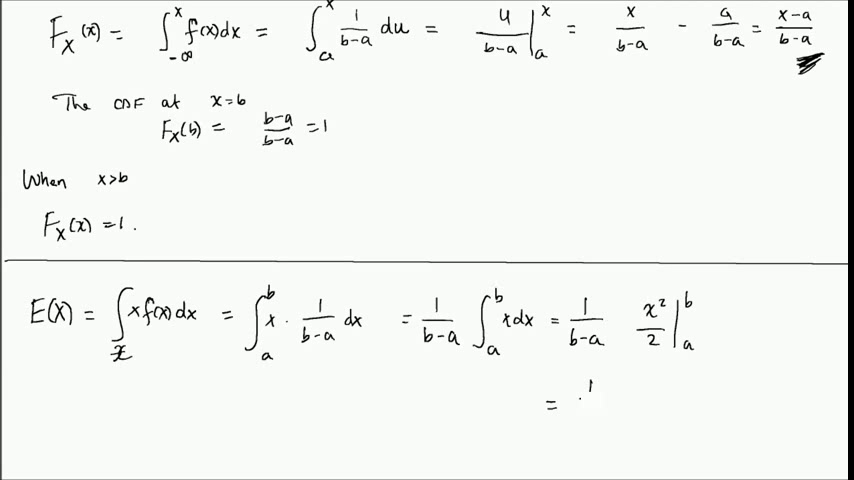 F_X(x) = ∫_{-∞}^{x} f(x)dx = ∫_{a}^{x} 1/(b-a) du = u/(b-a) |_{a}^{x} = x/(b-a) - a/(b-a) = (x-a)/(b-a)
The CDF at x=b
F_X(b) = (b-a)/(b-a) = 1
When x>b
F_X(x) = 1.
E(X) = ∫_{x} x f(x) dx = ∫_{a}^{b} x · 1/(b-a) dx = 1/(b-a) ∫_{a}^{b} x dx = 1/(b-a) x²/2 |_{a}^{b}
= 1